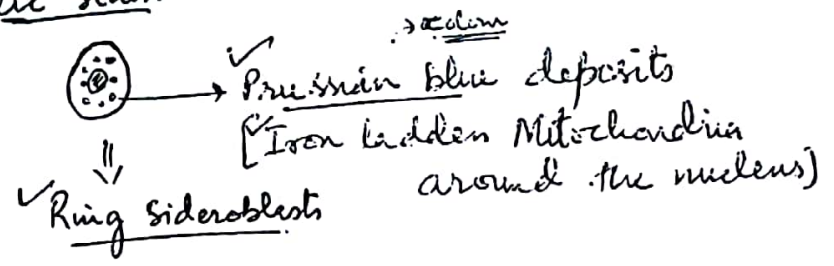 Prussian blue deposits
[Iron ladden Mitochondria
around the nucleus]
Ring sideroblasts